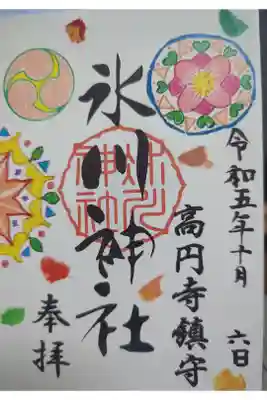 令和五年十月 六日
高円寺鎮守
氷川神社
奉拝